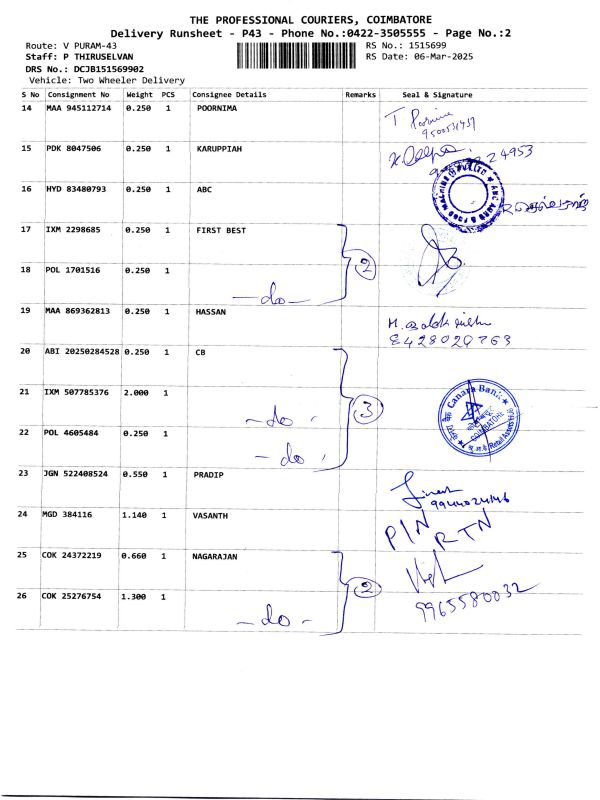 THE PROFESSIONAL COURIERS, COIMBATORE
Delivery Runsheet - P43 - Phone No.:0422-3505555 - Page No.:2
Route: V PURAM-43 RS No.: 1515699
Staff: P THIRUSELVAN RS Date: 06-Mar-2025
DRS No.: DCJB151569902
Vehicle: Two Wheeler Delivery
S No Consignment No Weight PCS Consignee Details Remarks Seal & Signature
14 MAA 945112714 0.250 1 POORNIMA
T Poornima
15 PDK 8047506 0.250 1 KARUPPIAH
24953
16 HYD 83480793 0.250 1 ABC
17 IXM 2298685 0.250 1 FIRST BEST
2
18 POL 1701516 0.250 1
-do-
19 MAA 869362813 0.250 1 HASSAN
8428020763
20 ABI 20250284528 0.250 1 CB
Canara Bank
COIMBATORE
Retail Assets H
21 IXM 507785376 2.000 1
-do-
3
22 POL 4605484 0.250 1
-do-
23 JGN 522408524 0.550 1 PRADIP
9944024146
24 MGD 384116 1.140 1 VASANTH
PIN RTN
25 COK 24372219 0.660 1 NAGARAJAN
2
9965580032
26 COK 25276754 1.300 1
-do-